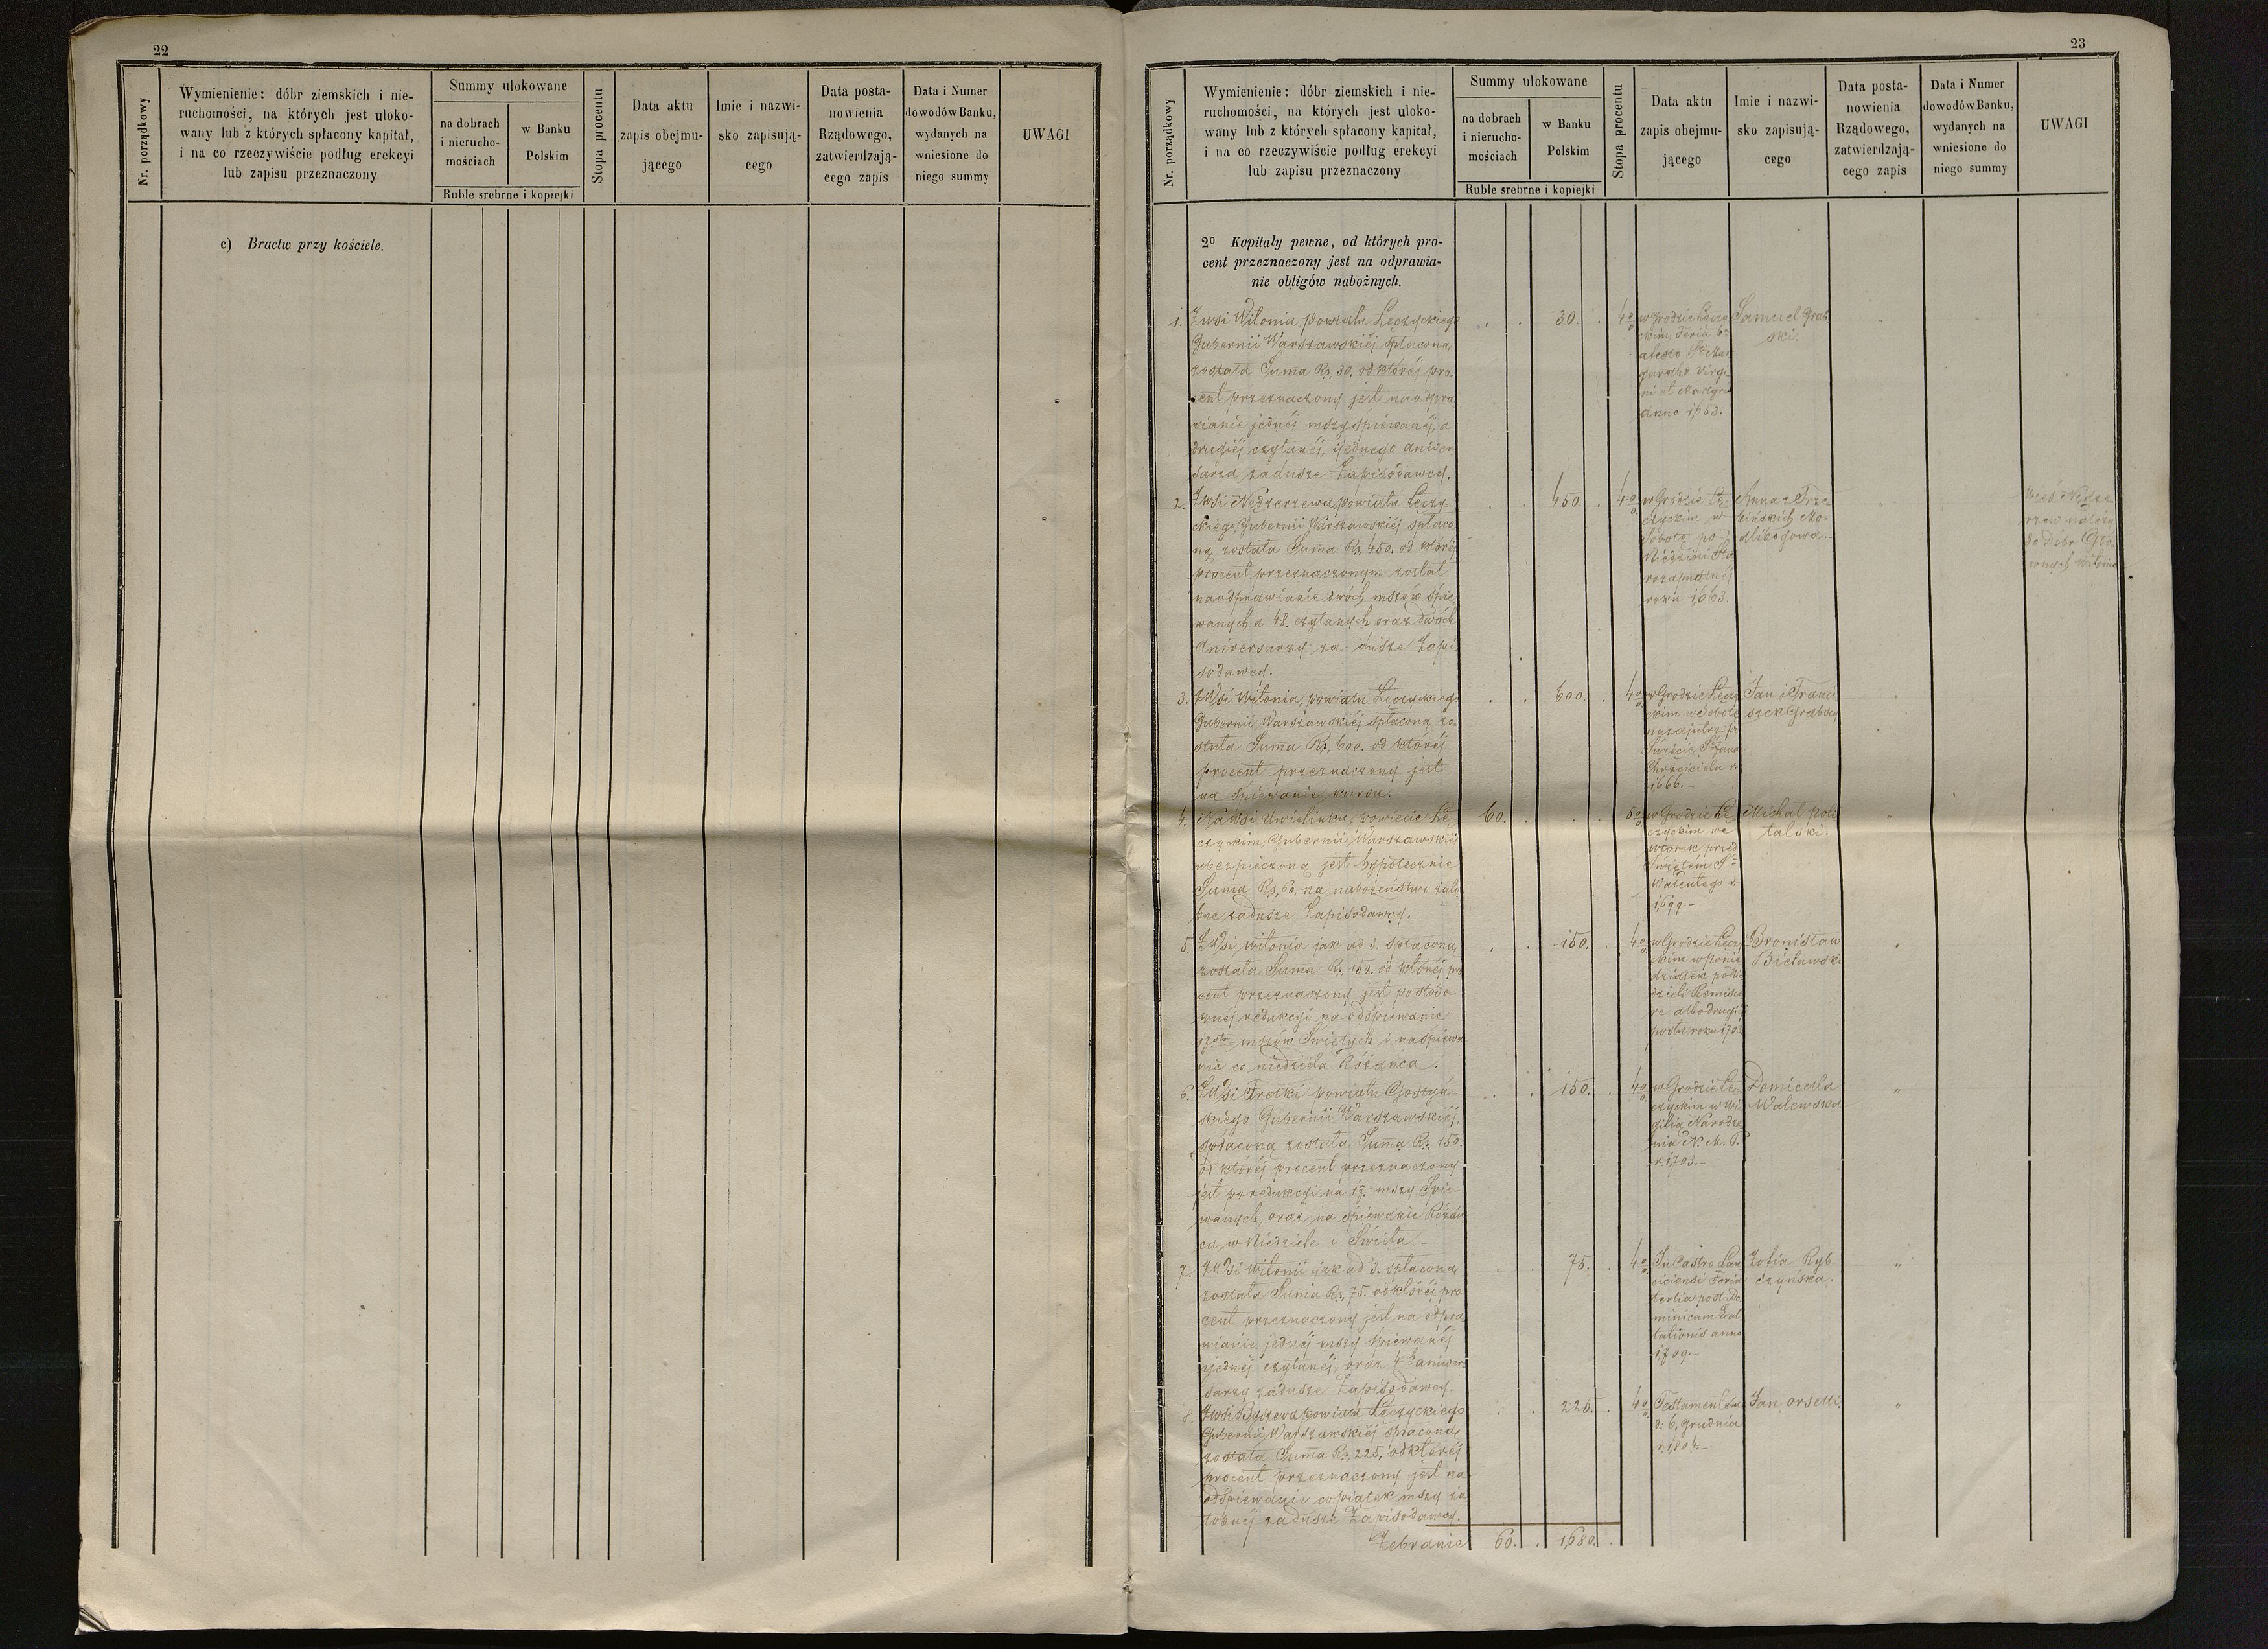 22
Nr. porządkowy
Wymienienie: dóbr ziemskich i nie-
ruchomości, na których jest uloko-
wany lub z których spłacony kapitał,
i na co rzeczywiście podług erekcyi
lub zapisu przeznaczony
Summy ulokowane
na dobrach
i nierucho-
mościach
w Banku
Polskim
Ruble srebrne i kopiejki
Stopa procentu
Data aktu
zapis obejmu-
jącego
Imie i nazwi-
sko zapisują-
cego
Data posta-
nowienia
Rządowego,
zatwierdzają-
cego zapis
Data i Numer
dowodów Banku,
wydanych na
wniesione do
niego summy
UWAGI
c) Bractw przy kościele.
23
Nr. porządkowy
Wymienienie: dóbr ziemskich i nie-
ruchomości, na których jest uloko-
wany lub z których spłacony kapitał,
i na co rzeczywiście podług erekcyi
lub zapisu przeznaczony
Summy ulokowane
na dobrach
i nierucho-
mościach
w Banku
Polskim
Ruble srebrne i kopiejki
Stopa procentu
Data aktu
zapis obejmu-
jącego
Imie i nazwi-
sko zapisują-
cego
Data posta-
nowienia
Rządowego,
zatwierdzają-
cego zapis
Data i Numer
dowodów Banku,
wydanych na
wniesione do
niego summy
UWAGI
2º Kapitały pewne, od których pro-
cent przeznaczony jest na odprawia-
nie obligów nabożnych.
1. Z wsi Witonia, powiatu Łęczyckiego
Gubernii Warszawskiéj spłaconą
została Summa Rs. 30. od któréj pro
cent przeznaczony jest na odpra
wianie jednéj mszy śpiewanéj, a
drugiéj czytanéj, i jednego aniwer
sarza za dusze Zapisodawcy.
30.
4%
w Grodzie Łęczy
ckim, Feria 6ta
Virgi
ni et Martyris
anno 1653.
Samuel Grab
ski.
2. Z wsi Nędzerzewa powiatu Łęczy-
ckiego, Gubernii Warszawskiéj spłaco
ną została Summa Rs. 450. od któréj
procent przeznaczonym został
na odprawianie dwóch mszów śpie
wanych a 48. czytanych oraz dwóch
Aniversarzy za dusze Zapi
sodawcy.
450.
4%
w Grodzie Łę
czyckim w
Sobotę po
Niedzieli Sta
rozapustnéj
roku 1663.
Anna z Trze
bińskich Mo-
dlibogowa.
Wieś Nędze
rzew należy
do Dobr Głó
wnych Witonia
3. Z Wsi Witonia, powiatu Łęczyckiego
Gubernii Warszawskiéj spłaconą zo
stała Summa Rs. 600. od któréj
procent przeznaczony jest
na śpiewanie kursu.
600.
4%
w Grodzie Łęczy
ckim w Sobotę
nazajutrz po
Święcie S. Jana
Chrzciciela r.
1666.
Jan i Franci
szek Grabscy
4. Na Wsi Uwielinku, powiecie Łę
czyckim, Gubernii Warszawskiéj
ubezpieczoną jest hypotecznie
Summa Rs. 60. na nabożeństwo żało
bne za dusze Zapisodawcy.
60.
5%
w Grodzie Łę
czyckim we
wtorek przed
Świętem Sgo
Walentego r.
1699.
Michał poli
talski.
5. Z Wsi Witonia jak ad 3. spłaconą
została Summa Rs. 150. od któréj pro
cent przeznaczony jest po stoso
wnéj redukcyi na odśpiewanie
mszów Świętych i na śpiewa
nie co niedziela Różańca.
150.
4%
w Grodzie Łęczy
ckim w Ponie
działek po Nie
dzieli Remisce
re albo drugiéj
postu roku 1703
Bronisław
Bielawski
6. Z Wsi Fretki powiatu Gostyń-
skiego Gubernii Warszawskiéj,
spłaconą została Summa Rs. 150.
od któréj procent przeznaczony
jest po redukcyi na 17. mszy Śpie-
wanych, oraz na śpiewanie Różań
ca w Niedziele i Święta.
150.
4%
w Grodzie Łę
czyckim w Wi
gilią Narodze
nia N. M. P.
r. 1703.
Domicella
Walewska
7. Z Wsi Witonii jak ad 3. spłaconą
została Summa Rs. 75. od któréj pro
cent przeznaczony jest na odpra
wianie jednéj mszy śpiewanéj
i jednéj czytanéj, oraz aniwer
sarzy za dusze Zapisodawcy.
75.
4%
In Castro Lan
ciciensi Feria
tertia post Do
minicam Exal
tationis anno
1709.
Zofia Ryb-
czyńska.
8. Z Wsi Byszewa powiatu Łęczyckiego
Gubernii Warszawskiéj spłaconą
została Summa Rs. 225. od któréj
procent przeznaczony jest na
odśpiewanie co piątek mszy ża
łobnéj za dusze Zapisodawcy.
225.
4%
Testamentem
d: 6. Grudnia
r. 1804.
Jan Orsetti.
Zebranie 60. 1,680.